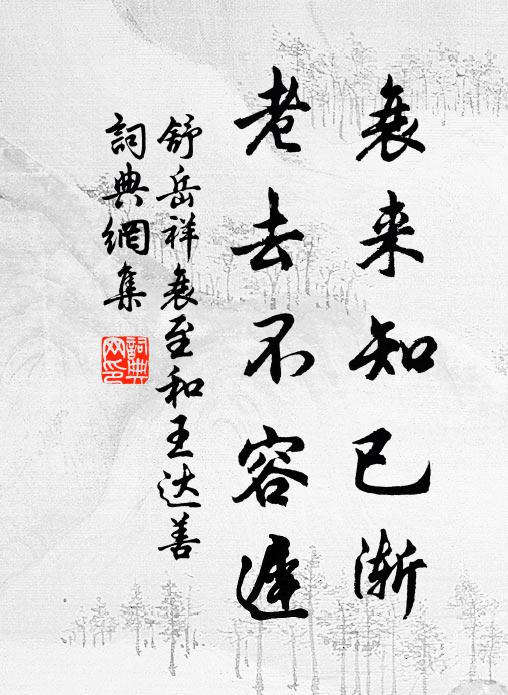 衰来知已渐
老去不容遲
舒岳祥衰至和王达善
詞典網集
詞典網印